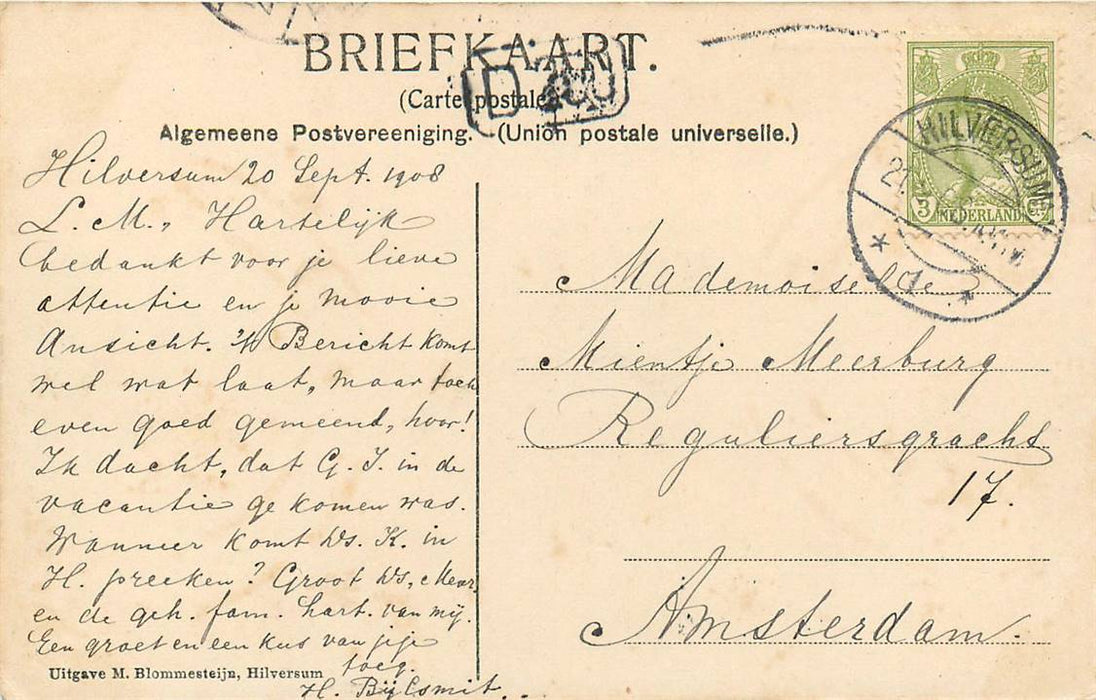 BRIEFKAART.
(Carte postale)
Algemeene Postvereeniging. (Union postale universelle.)
HILVERSUM
3 NEDERLAND
Hilversum 20 Sept. 1908
L. M., Hartelijk
bedankt voor je lieve
attentie en je mooie
Ansicht. 't Bericht komt
wel wat laat, maar toch
even goed gemeend, hoor!
Ik dacht, dat G. J. in de
vacantie gekomen was.
Wanneer komt Ds. K. in
H. preeken? Groet Ds, Mevr,
en de geh. fam. hart. van mij.
Een groet en een kus van je je
toeg.
H. Bijlsmit.
Mademoiselle
Mientje Meerburg
Reguliersgracht
17.
Amsterdam.
Uitgave M. Blommesteijn, Hilversum